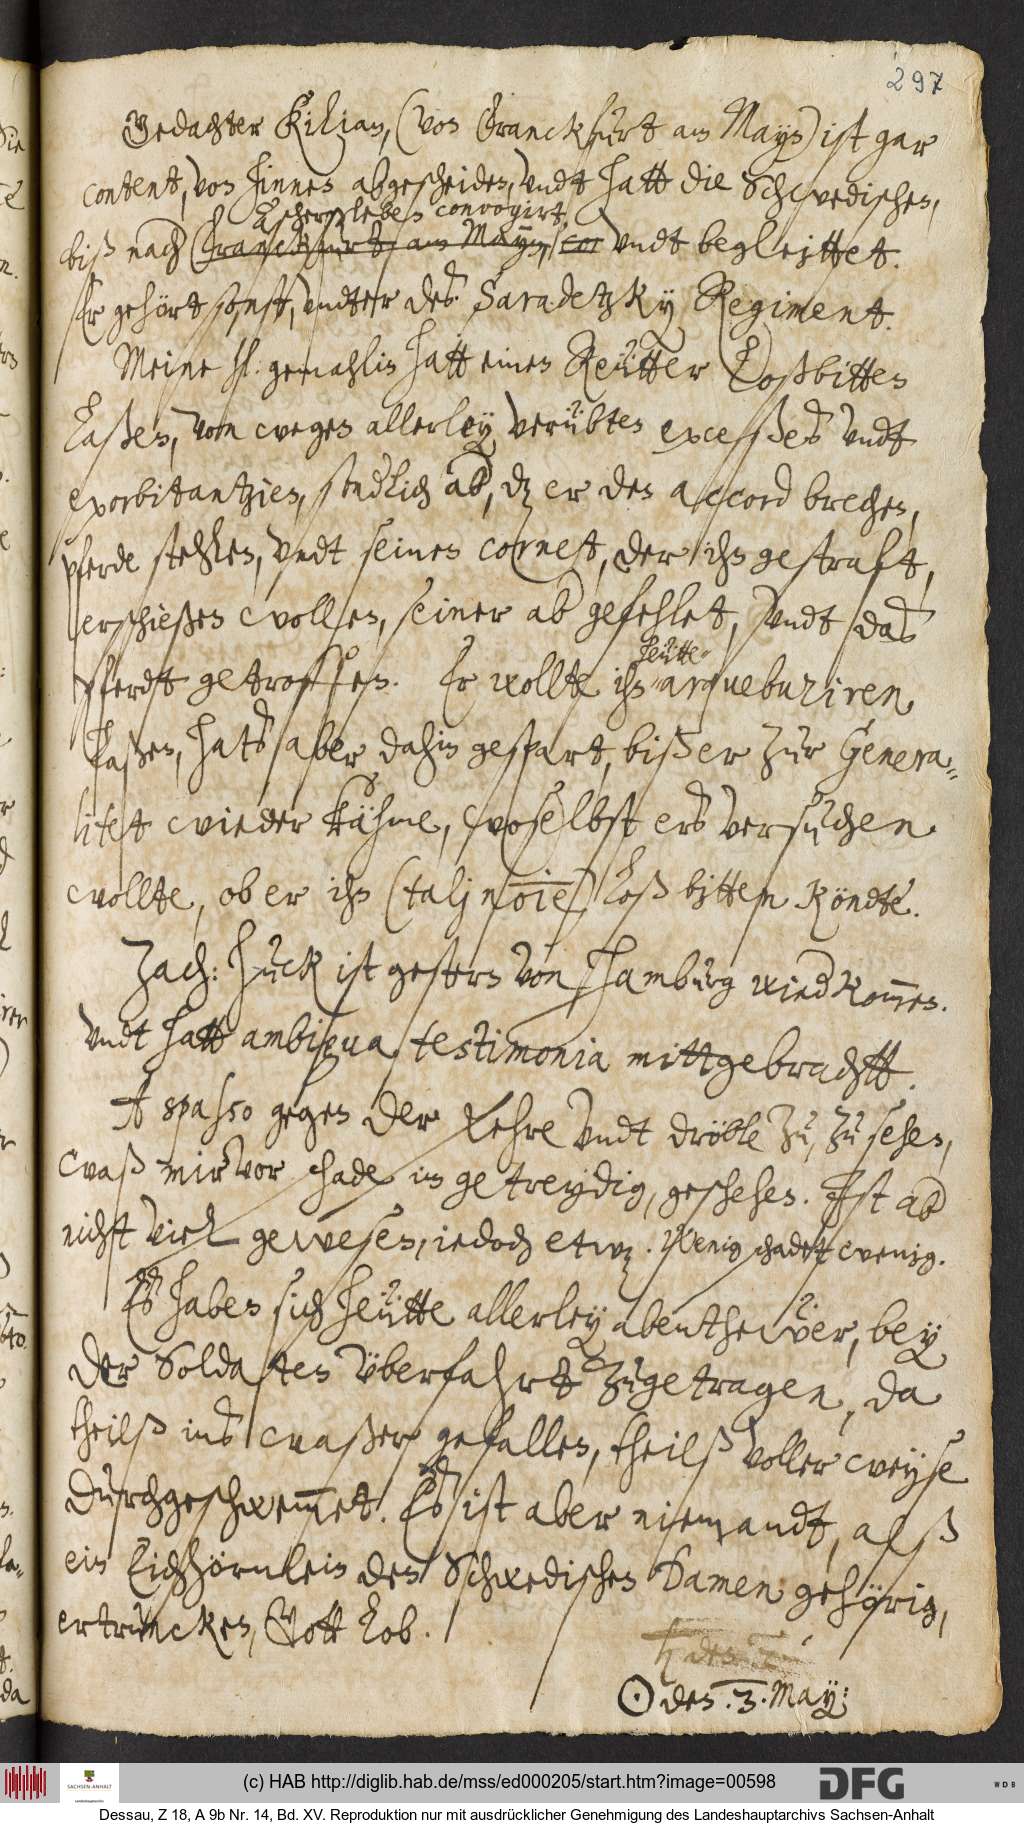 297
Gedachter Kilian, (von Franckfurt am Mayn) ist gar
content, von hinnen abgescheiden, undt hatt die Schwedischen,
Aschersleben convoyirt,
biß nach Franckfurt, am Mayn, con undt begleittet.
Er gehört sonst, undter des Saradetzky Regiment.
Meine hl: gemahlin hatt einen Reütter loßbitten
laßen, von wegen allerley verübten exceßes undt
exorbitantzien, sonderlich aber, daß er den accord brechen,
pferde stehlen, undt seinen cornet, der ihn gestraft,
erschießen wollen, seiner aber gefehlet, undt das
heütte
pferdt getroffen. Er wollte ihn arquebuziren
laßen, hats aber dahin gespart, biß er zur Genera-
litet wieder kähme, woselbst ers versuchen
wollte, ob er ihn (tali nōīē) loß bitten köndte.
Zach: Huck ist gestern von Hamburg wieder kommen.
undt hatt ambigua testimonia mittgebrachtt.
A spasso gegen der Kehre undt dröble zu, zu sehen,
waß mir vor schade im getreydig, geschehen. Ist aber
nicht viel gewesen, iedoch etwz. Wenig schadet wenig.
Es haben sich heütte allerley abentheüer, bey
der Soldaten überfahrt zugetragen, da
theilß ins waßer gefallen, theilß voller weyse
durchgeschwemmet. Es ist aber niemandt, alß
ein Eichhörnlein den Schwedischen Damen gehörig,
ertruncken, Gott lob.
☉ den .3. May:
(c) HAB http://diglib.hab.de/mss/ed000205/start.htm?image=00598
SACHSEN-ANHALT
DFG
WDB
Dessau, Z 18, A 9b Nr. 14, Bd. XV. Reproduktion nur mit ausdrücklicher Genehmigung des Landeshauptarchivs Sachsen-Anhalt